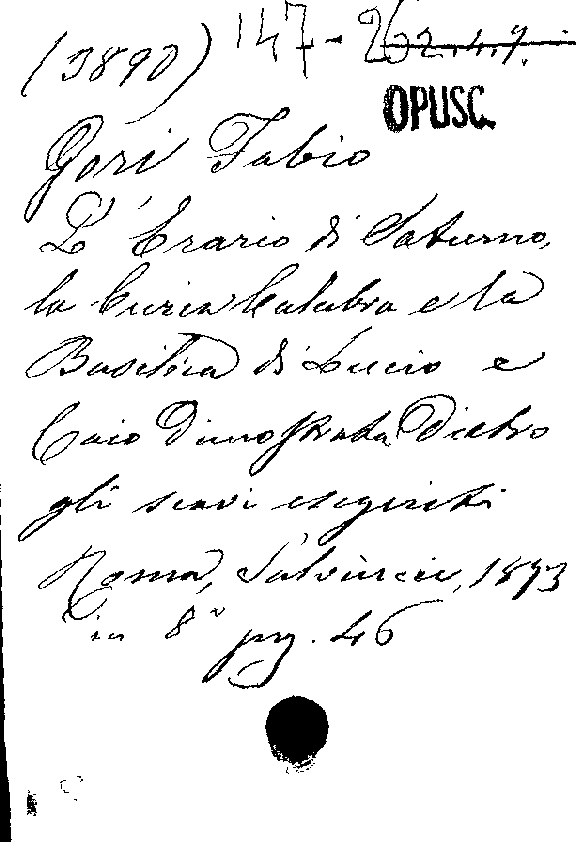 (3890) 147-26
OPUSC.
Gori Fabio
L'Erario di Saturno,
la Curia Calabra e la
Basilica di Lucio e
Caio Dimostrata Dietro
gli scavi eseguiti
Roma, Salviucci, 1873
in 8° pg. 46